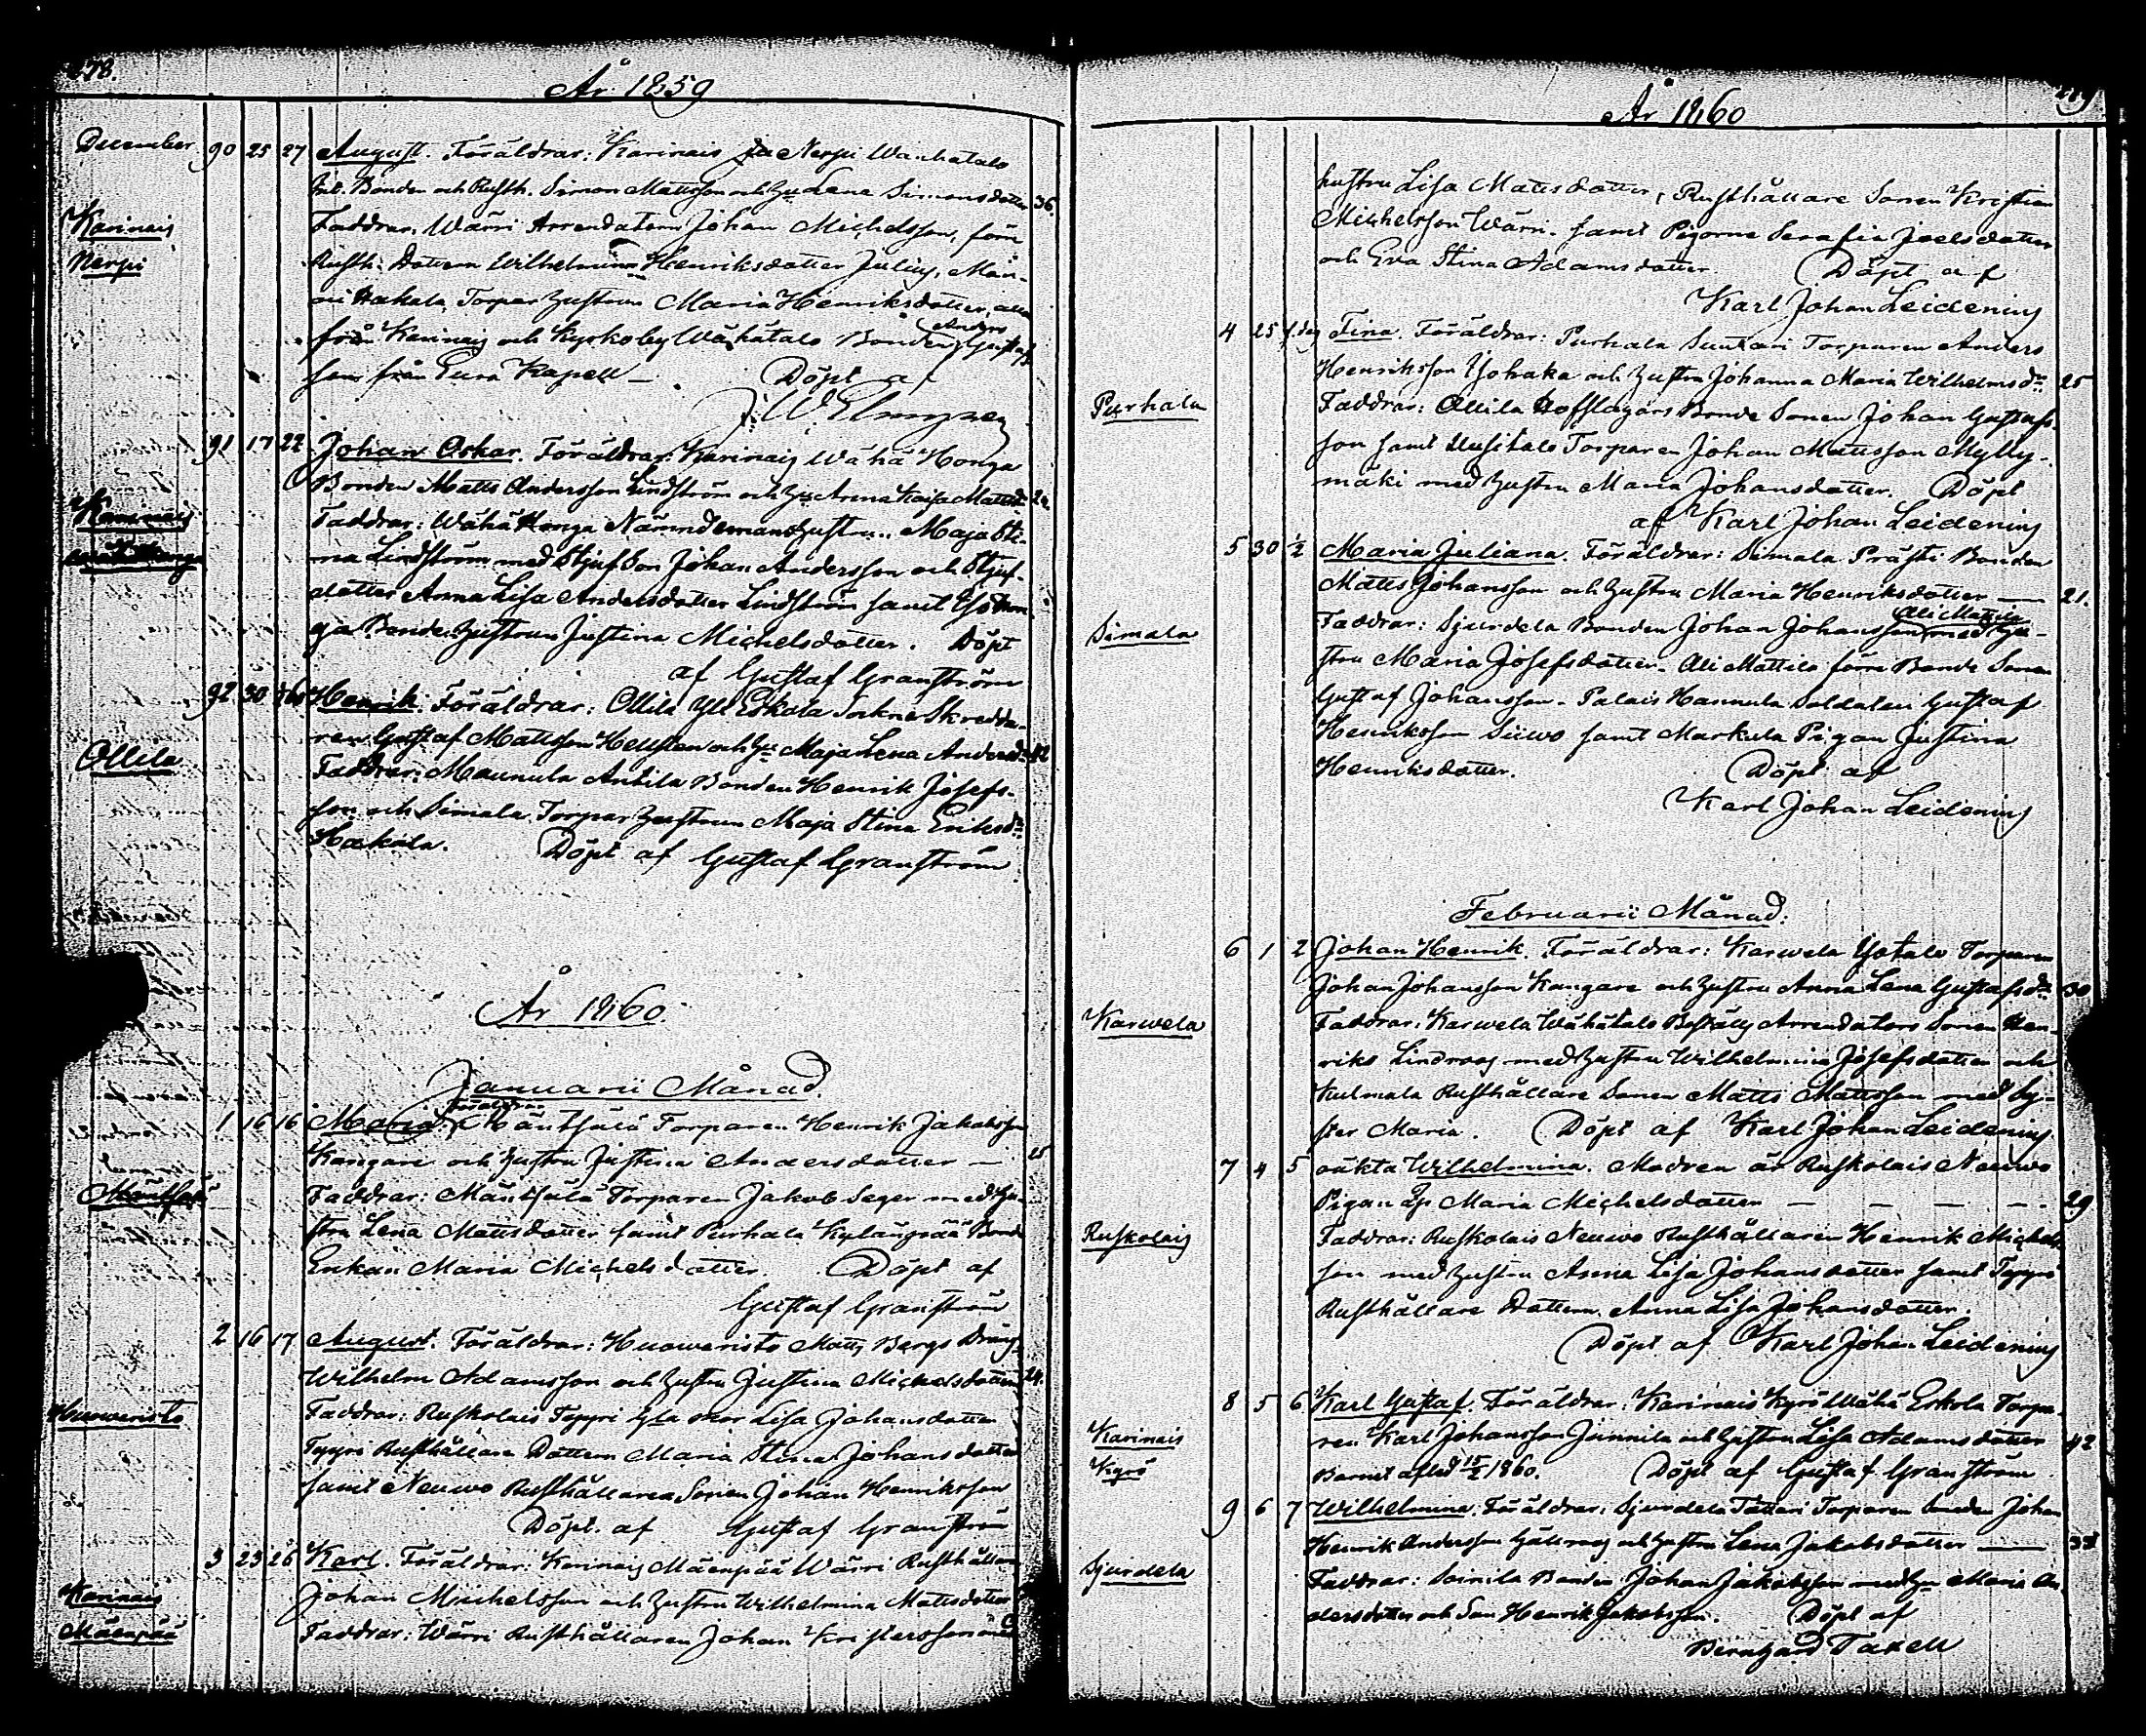 278.
År 1859
December 90 25 27 August. Föräldrar: Karinais Nerpi Wanhatalo
Bonden och Rusth. Simon Mattsson och Hu Lena Simonsdotter 36.
Karinais
Nerpi
Faddrar. Wärri Arrendatorn Johan Michelsson, förre
Rusth. Dottern Wilhelmina Henriksdotter Julius, Män-
Hakala, Torpar Hustrun Maria Henriksdotter, alla
från Karinais och Kyrkoby Wähätalo Bonden Anders Gustafs-
son från Eura Kapell — Döpt af
91 17 22 Johan Oskar. Föräldrar: Karinais Wähä Honga
Bonden Matts Andersson Lindström och Hu Anna Kaisa Mattsd:
Karinais
Faddrar: Wähä Honga Nämndemans Hustrun Maja Sti-
na Lindström med Stjuf Son Johan Andersson och Stjuf-
dotter Anna Lisa Andersdotter Lindström samt Iso Hon-
ga Bonde Hustrun Justina Michelsdotter. Döpt
af Gustaf Granström
92 30 Henrik. Föräldrar: Ollila Yli Eskola Sockne Skredda-
ren Gustaf Mattsson Hellsten och Hu Maja Lena Andersd: 42
Ollila
Faddrar: Maunula Antila Bonden Henrik Josefs-
son och Simala Torpar Hustrun Maja Stina Eriksd:
Hakala. Döpt af Gustaf Granström
År 1860.
Januarii Månad.
1 16 16 Maria. Föräldrar: Mäntsälä Torparen Henrik Jakobsson
Kangare och Hustru Justina Andersdotter — 25
Mäntsälä
Faddrar: Mäntsälä Torparen Jakob Seger med Hu-
stru Lena Mattsdotter samt Purhala Kylänpää Bonde
Enkan Maria Michelsdotter. Döpt af
Gustaf Granström
2 16 17 August. Föräldrar: Huoweristo Matts Bergs Dräng
Wilhelm Adamsson och Hustru Justina Michelsdotter 24.
Huoweristo
Faddrar: Ruskolais Tyyri Lisa Johansdotter
Tyyri Rusthållare Dottern Maria Stina Johansdotter
samt Neuwo Rusthållare Sonen Johan Henriksson
Döpt af Gustaf Granström
3 23 26 Karl. Föräldrar: Karinais Mäenpää Wärri Rusthållaren
Karinais
Mäenpää
Johan Michelsson och Hustru Wilhelmina Mattsdotter
Faddrar: Wärri Rusthållaren Johan Kristersson med
År 1860
hustru Lisa Mattsdotter, Rusthållare Sonen Kristian
Michelsson Wärri. samt Pigorna Serafia Joelsdotter
och Eva Stina Adamsdotter. Döpt af
Karl Johan Leidenius
4 25 Fina. Föräldrar: Purhala Suutari Torparen Anders
Henriksson Isohaka och Hustru Johanna Maria Wilhelmsd: 25
Purhala
Faddrar: Ollila Hofflagars Bonde Sonen Johan Gustafs-
son samt Uusitalo Torparen Johan Mattsson Mylly-
mäki med Hustru Maria Johansdotter. Döpt
af Karl Johan Leidenius
5 30 ½ Maria Juliana. Föräldrar: Simala Prästi Bonden
Matts Johansson och Hustru Maria Henriksdotter — 21.
Simala
Faddrar: Sjurdela Bonden Johan Johansson Ali Mattila med Hu-
stru Maria Josefsdotter. Ali Mattila förre Bonde Sonen
Gustaf Johansson. Palais Hannula Soldaten Gustaf
Henriksson Siiwo samt Markula Pigan Justina
Henriksdotter. Döpt af
Karl Johan Leidenius
Februarii Månad.
6 1 2 Johan Henrik. Föräldrar: Karwela Ylitalo Torparen
Johan Johansson Kangare och Hustru Anna Lena Gustafsd: 30
Karwela
Faddrar: Karwela Wähätalo Arrendators Sonen Hen-
riks Lindroos med Hustru Wilhelmina Josefsdotter och
Kulmala Rusthållare Sonen Matts Mattsson med Sy-
ster Maria. Döpt af Karl Johan Leidenius
7 4 5 oäkta Wilhelmina. Modren är Ruskolais Neuwo
Pigan Maria Michelsdotter — — — 29
Ruskolais
Faddrar: Ruskolais Neuwo Rusthållaren Henrik Michels-
son med Hustru Anna Lisa Johansdotter samt Tyyri
Rusthållare Dottern Anna Lisa Johansdotter.
Döpt af Karl Johan Leidenius
8 5 6 Karl Gustaf. Föräldrar: Karinais Kyrö Wähä Eskola Torpa-
ren Karl Johansson Junnila och Hustru Lisa Adamsdotter 42
Karinais
Kyrö
Barnet afled 15/2 1860. Döpt af Gustaf Granström
9 6 7 Wilhelmina. Föräldrar: Sjurdela Tattari Torparen Johan
Henrik Andersson Hällroos och Hustru Lena Jakobsdotter — 38
Sjurdela
Faddrar: Soinila Bonden Johan Jakobsson med Hu Maria An-
dersdotter och Son Henrik Jakobsson. Döpt af
Bernhard Taxell